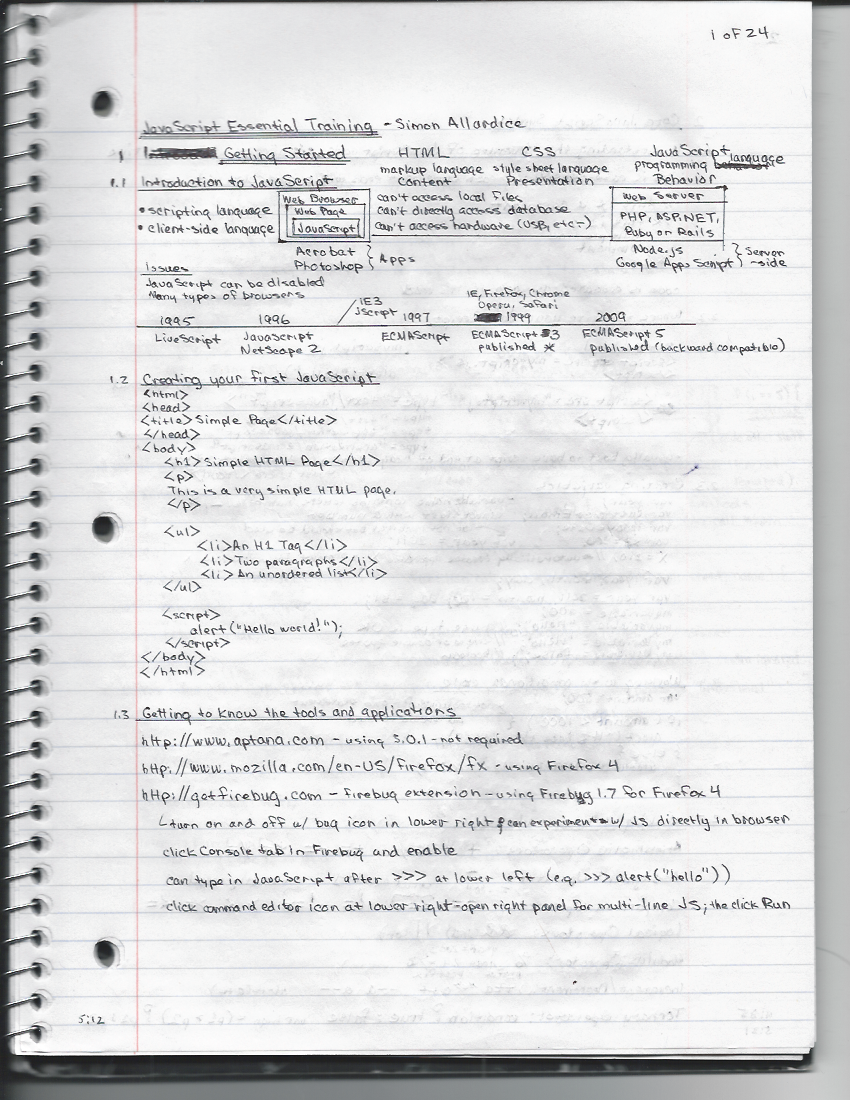 1 OF 24
JavaScript Essential Training - Simon Allardice
1 Getting Started HTML CSS JavaScript
markup language style sheet language programming language
1.1 Introduction to JavaScript Content Presentation Behavior
Web Browser can't access local files Web Server
• scripting language Web Page can't directly access database PHP, ASP.NET,
• client-side language JavaScript can't access hardware (USB, etc.-) Ruby on Rails
Acrobat Node.js Server
Photoshop } Apps Google Apps Script } -side
Issues
JavaScript can be disabled
Many types of browsers IE3 IE, Firefox, Chrome
JScript Opera, Safari
1995 1996 1997 1999 2009
LiveScript JavaScript ECMAScript ECMAScript 3 ECMAScript 5
NetScape 2 published * published (backward compatible)
1.2 Creating your first JavaScript
<html>
<head>
<title> Simple Page</title>
</head>
<body>
<h1> Simple HTML Page</h1>
<p>
This is a very simple HTML page.
</p>
<ul>
<li>An H1 Tag</li>
<li> Two paragraphs</li>
<li> An unordered list</li>
</ul>
<script>
alert("Hello world!");
</script>
</body>
</html>
1.3 Getting to know the tools and applications
http://www.aptana.com - using 3.0.1 - not required
http://www.mozilla.com/en-US/firefox/fx - using Firefox 4
http://getfirebug.com - firebug extension - using Firebug 1.7 for Firefox 4
turn on and off w/ bug icon in lower right & can experiment w/ JS directly in browser
click Console tab in Firebug and enable
can type in JavaScript after >>> at lower left (e.g. >>> alert("hello"))
click command editor icon at lower right-open right panel for multi-line JS; the click Run
5:12